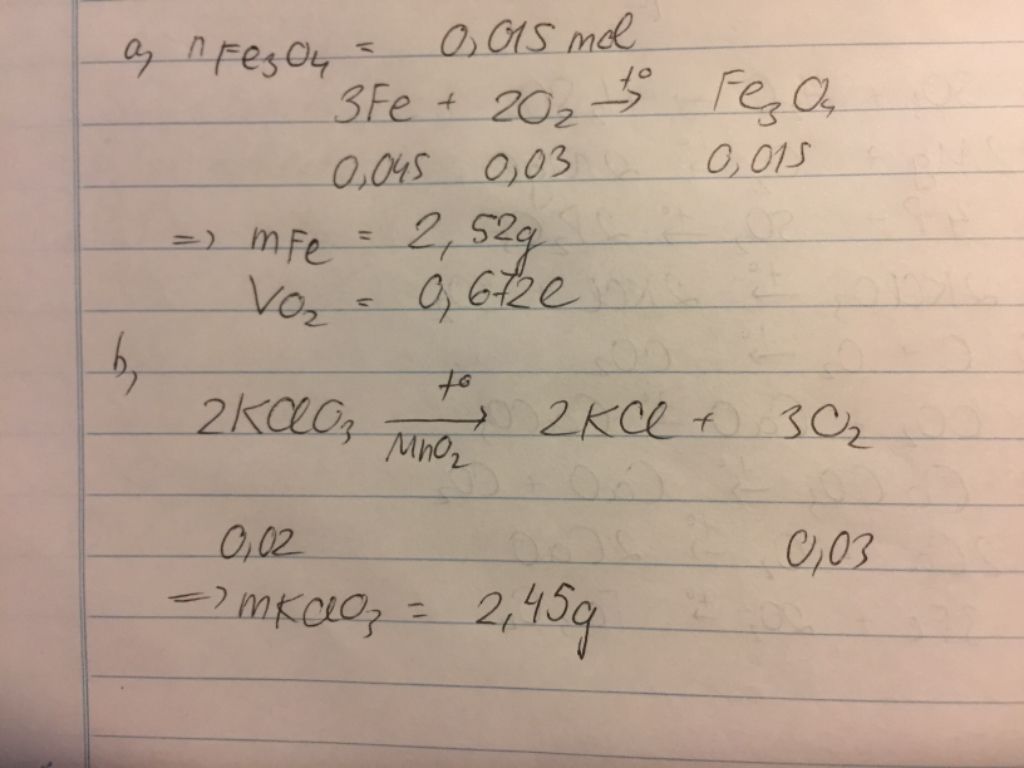 a, nFe3O4 = 0,015 mol
3Fe + 2O2 t°→ Fe3O4
0,045 0,03 0,015
=> mFe = 2,52g
VO2 = 0,672l
b,
2KClO3 t°→ MnO2 2KCl + 3O2
0,02 0,03
=> mKClO3 = 2,45g